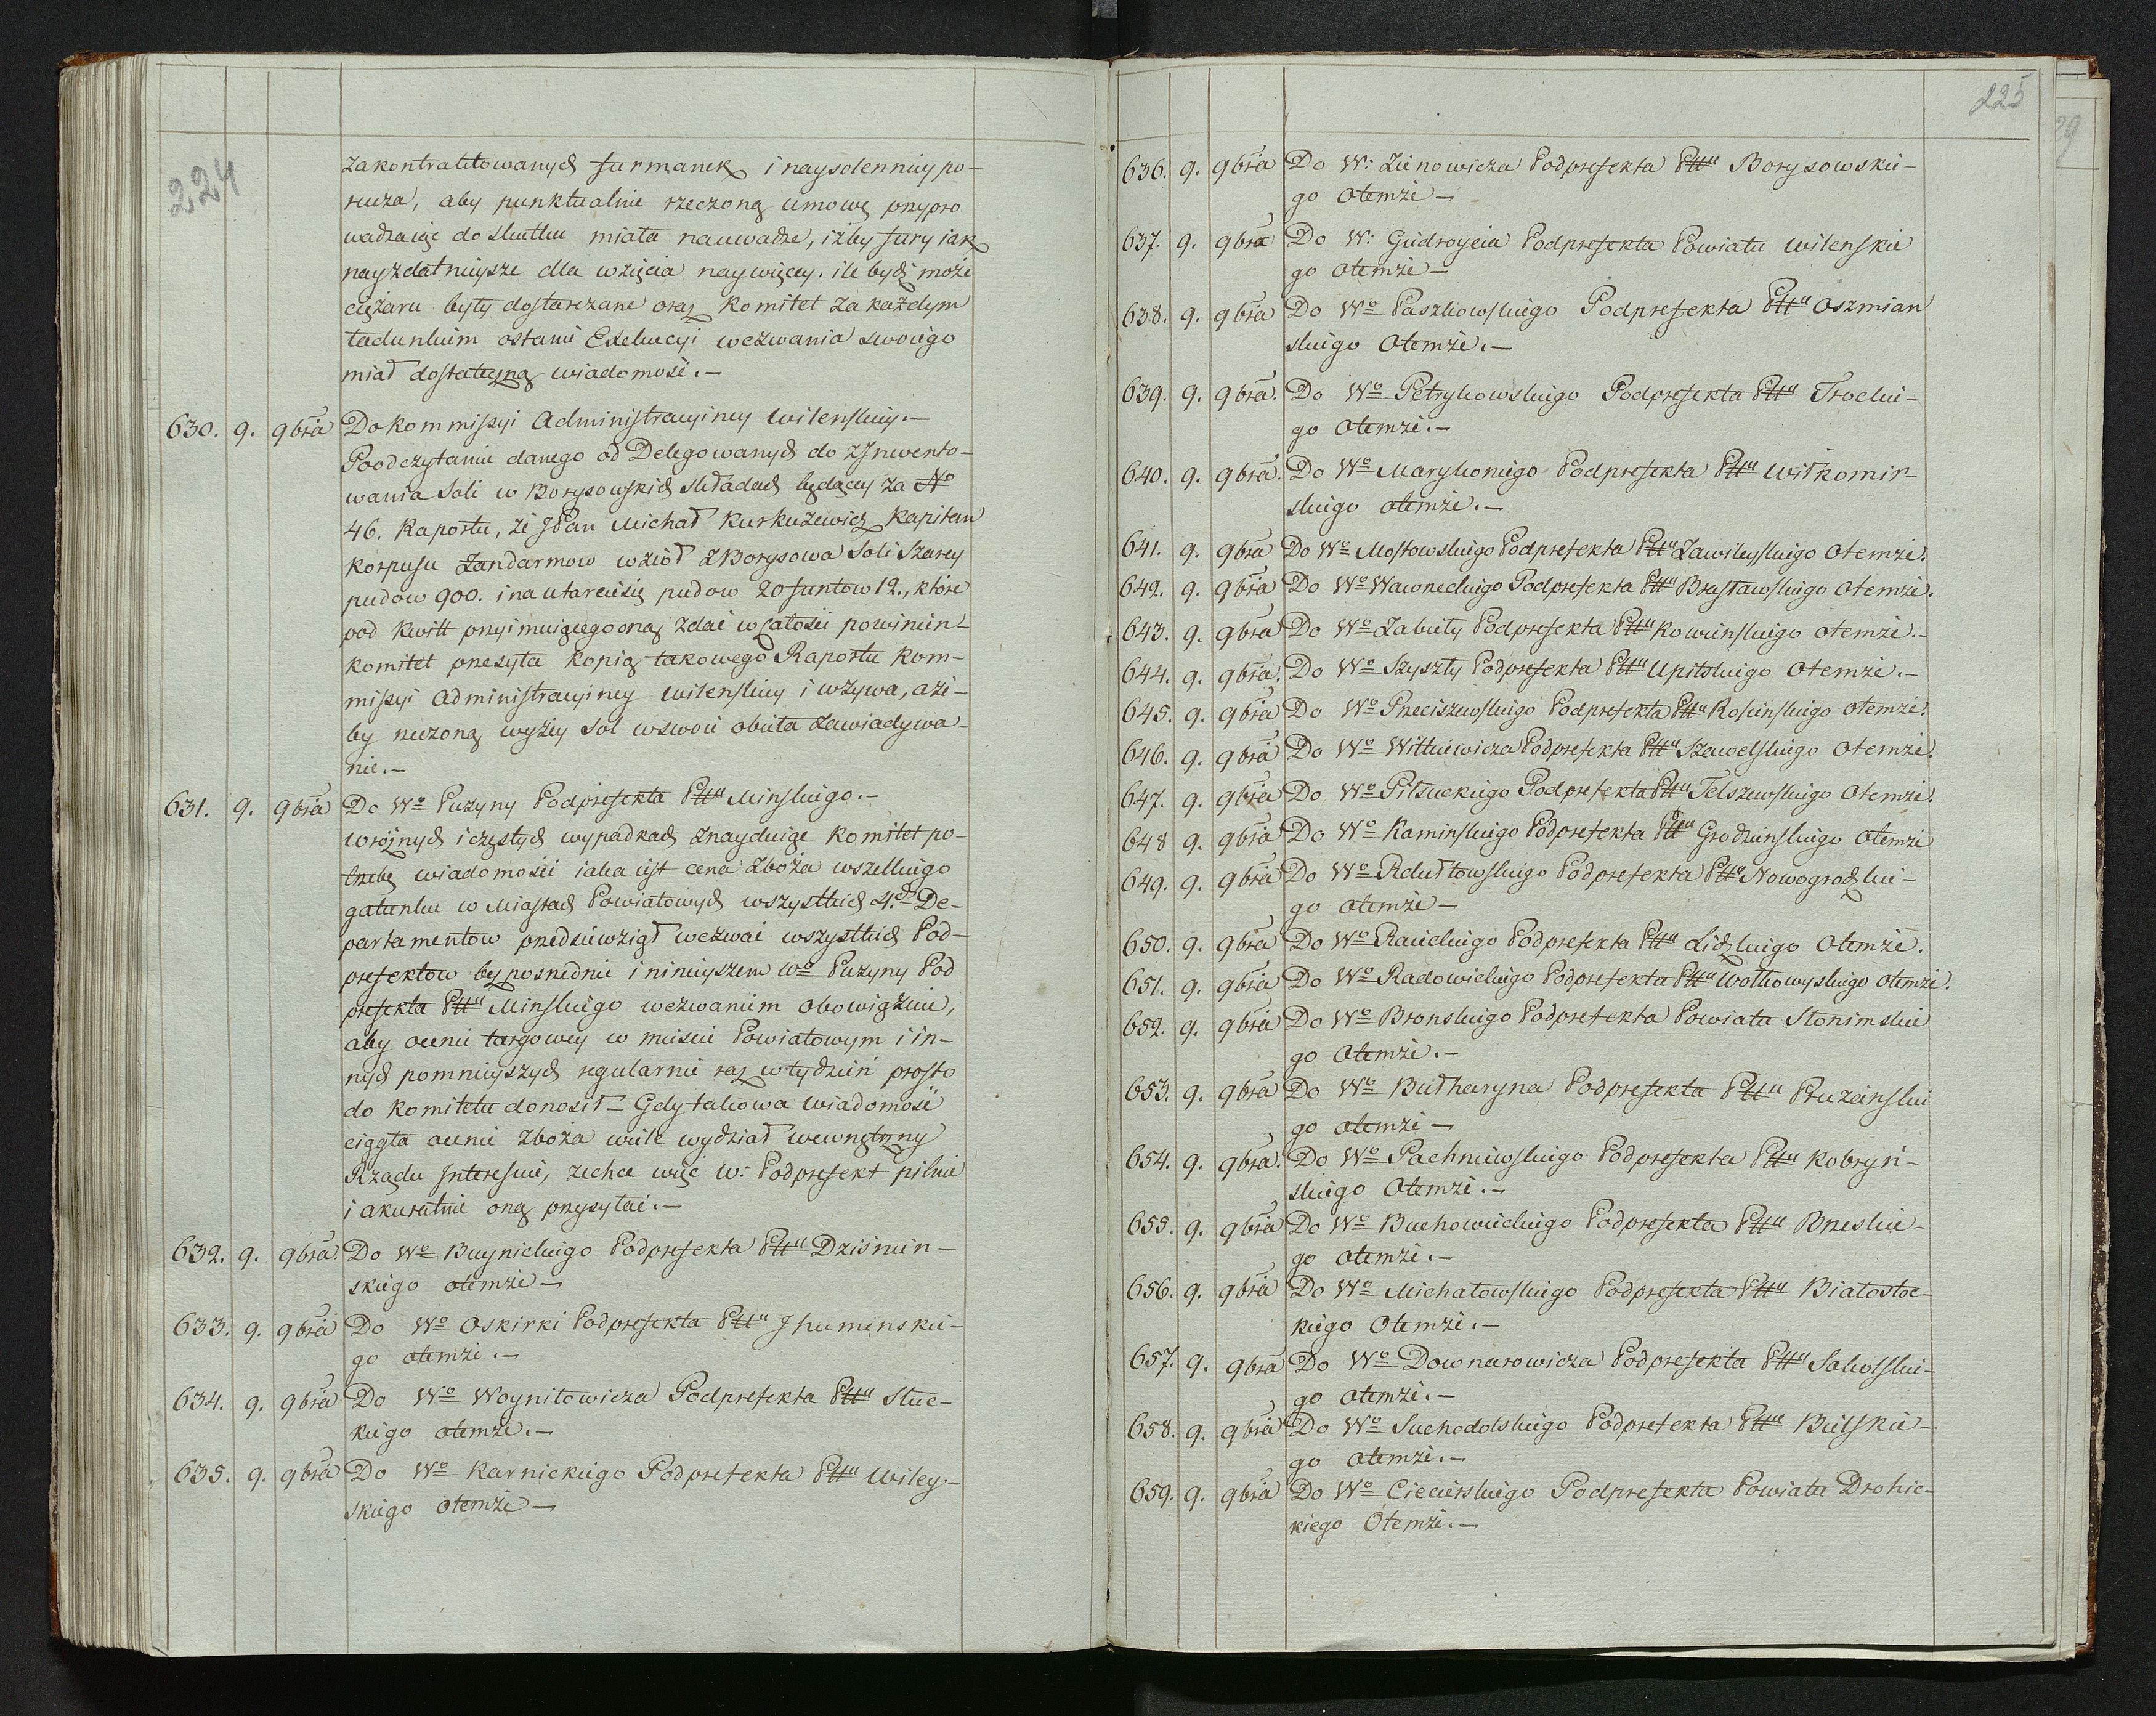 224
zakontraktowanych furmanek i naysolenniey po-
rucza, aby punktualnie rzeczoną umowę przypro
wadzaiąc do skutku miała nauwadze, iżby fury iak
nayzdatnieysze dla wzięcia naywięcey ile bydź może
ciężaru były dostarczane oraz Komitet za każdym
ładunkiem o stanie Exekucyi wezwania swoiego
miał dostateczną wiadomość.—
630. 9. 9bra Do Kommissyi Administracyiney Wileńskiey.—
Po odczytaniu danego od Delegowanych do zJnwento-
wania Soli w Borysowskich składach będącey za No
46. Raportu, że JPan Michał Kurkuzewicz Kapitan
Korpusu Żandarmow wziół z Borysowa Soli Szarey
pudow 900. i na utarcie się pudow 20 funtow 12., które
pod kwitt przyimuiącego oną zdać w całości powinien
Komitet przesyła kopią takowego Raportu Kom-
missyi Administracyiney Wileńskiey i wzywa, aże-
by rzeczoną wyżey Sol w swoie obięła zawiadywa-
nie.—
631. 9. 9bra Do Wo Puzyny Podprefekta Pttu Minskiego.—
W różnych i częstych wypadkach znayduiąc Komitet po-
trzebę wiadomości iaka iest cena zboża wszelkiego
gatunku w Miastach Powiatowych wszystkich 4.ch De-
partamentow przedsięwziął wezwać wszystkich Pod-
prefektow bezposrednie i ninieyszem Wo Puzyny Pod
prefekta Pttu Minskiego wezwaniem obowiązuie,
aby o cenie targowey w mieście Powiatowym i in-
nych pomnieyszych regularnie raz w tydzień prosto
do Komitetu donosił — Gdy takowa wiadomość
ciągła o cenie zboża wiele wydział wewnętrzny
Rządu Jnteresuie, zechce więc W: Podprefekt pilnie
i akuratnie oną przysyłać.—
632. 9. 9bra. Do Wo Buynickiego Podprefekta Pttu Dziśnień-
skiego otemże —
633. 9. 9bra Do Wo Oskirki Podprefekta Pttu Jhumenskie-
go otemże.—
634. 9. 9bra Do Wo Woyniłowicza Podprefekta Pttu Słuc-
kiego otemże.—
635. 9. 9bra Do Wo Karnickiego Podprefekta Pttu Wiley-
skiego otemże —
225
636. 9. 9bra Do W: Zienowicza Podprefekta Pttu Borysowskie-
go otemże —
637. 9. 9bra Do W: Giedroycia Podprefekta Powiatu Wilenskie
go otemże —
638. 9. 9bra Do Wo Paszkowskiego Podprefekta Pttu Oszmian
skiego Otemże.—
639. 9. 9bra. Do Wo Petrykowskiego Podprefekta Pttu Trockie-
go otemże.—
640. 9. 9bra. Do Wo Marykoniego Podprefekta Pttu Wiłkomir-
skiego otemże.—
641. 9. 9bra Do Wo Mostowskiego Podprefekta Pttu Zawileyskiego Otemże.
642. 9. 9bra Do Wo Wawrzeckiego Podprefekta Pttu Brasławskiego Otemże.
643. 9. 9bra Do Wo Zabiełły Podprefekta Pttu Kowieńskiego otemże.—
644. 9. 9bra. Do Wo Szyszły Podprefekta Pttu Upitskiego Otemże.—
645. 9. 9bra Do Wo Przeciszewskiego Podprefekta Pttu Rosieńskiego otemże.
646. 9. 9bra Do Wo Witkiewicza Podprefekta Pttu Szawelskiego Otemże.
647. 9. 9bra Do Wo Piłsuckiego Podprefekta Pttu Telszewskiego Otemże.
648 9. 9bra Do Wo Kaminskiego Podprefekta Pttu Grodzieńskiego Otemże
649. 9. 9bra Do Wo Rdułtowskiego Podprefekta Pttu Nowogrodzkie-
go otemże —
650. 9. 9bra Do Wo Raieckiego Podprefekta Pttu Lidzkiego Otemże.
651. 9. 9bra Do Wo Radowickiego Podprefekta Pttu Wołkowyskiego otemże.
652. 9. 9bra Do Wo Bronskiego Podprefekta Powiatu Słonimskie
go Otemże.—
653. 9. 9bra Do Wo Bułharyna Podprefekta Pttu Prużańskie
go otemże —
654. 9. 9bra. Do Wo Pachniewskiego Podprefekta Pttu Kobryń-
skiego Otemże.—
655. 9. 9bra Do Wo Buchowieckiego Podprefekta Pttu Brzeskie-
go otemże.—
656. 9. 9bra Do Wo Michałowskiego Podprefekta Pttu Białostoc-
kiego Otemże.—
657. 9. 9bra Do Wo Downarowicza Podprefekta Pttu Sokolskie-
go otemże.—
658. 9. 9bra Do Wo Suchodolskiego Podprefekta Pttu Bielskie-
go otemże.—
659. 9. 9bra Do Wo Ciecierskiego Podprefekta Powiatu Drohic-
kiego Otemże.—